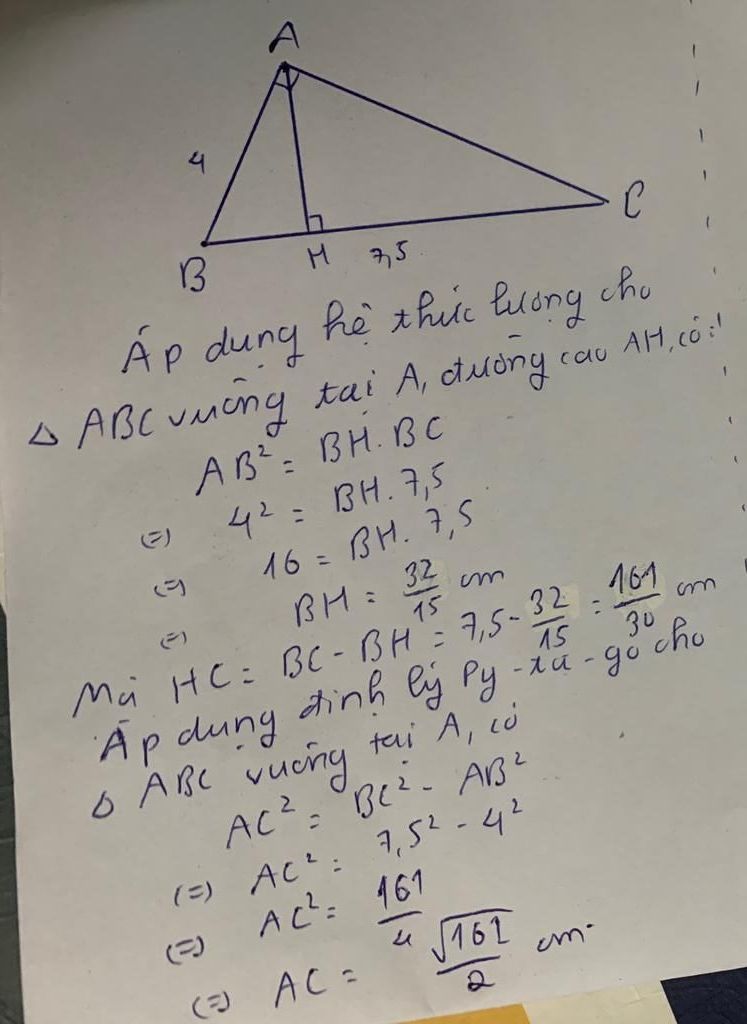 A
4
C
B
H
7,5
Áp dụng hệ thức lượng cho
Δ ABC vuông tại A, đường cao AH, có:
AB² = BH. BC
(=) 4² = BH. 7,5
(=) 16 = BH. 7,5
(=) BH = 32/15 cm
Mà HC = BC - BH = 7,5 - 32/15 = 161/30 cm
Áp dụng định lý Py-ta-go cho
Δ ABC vuông tại A, có
AC² = BC² - AB²
(=) AC² = 7,5² - 4²
(=) AC² = 161/4
(=) AC = √161/2 cm.